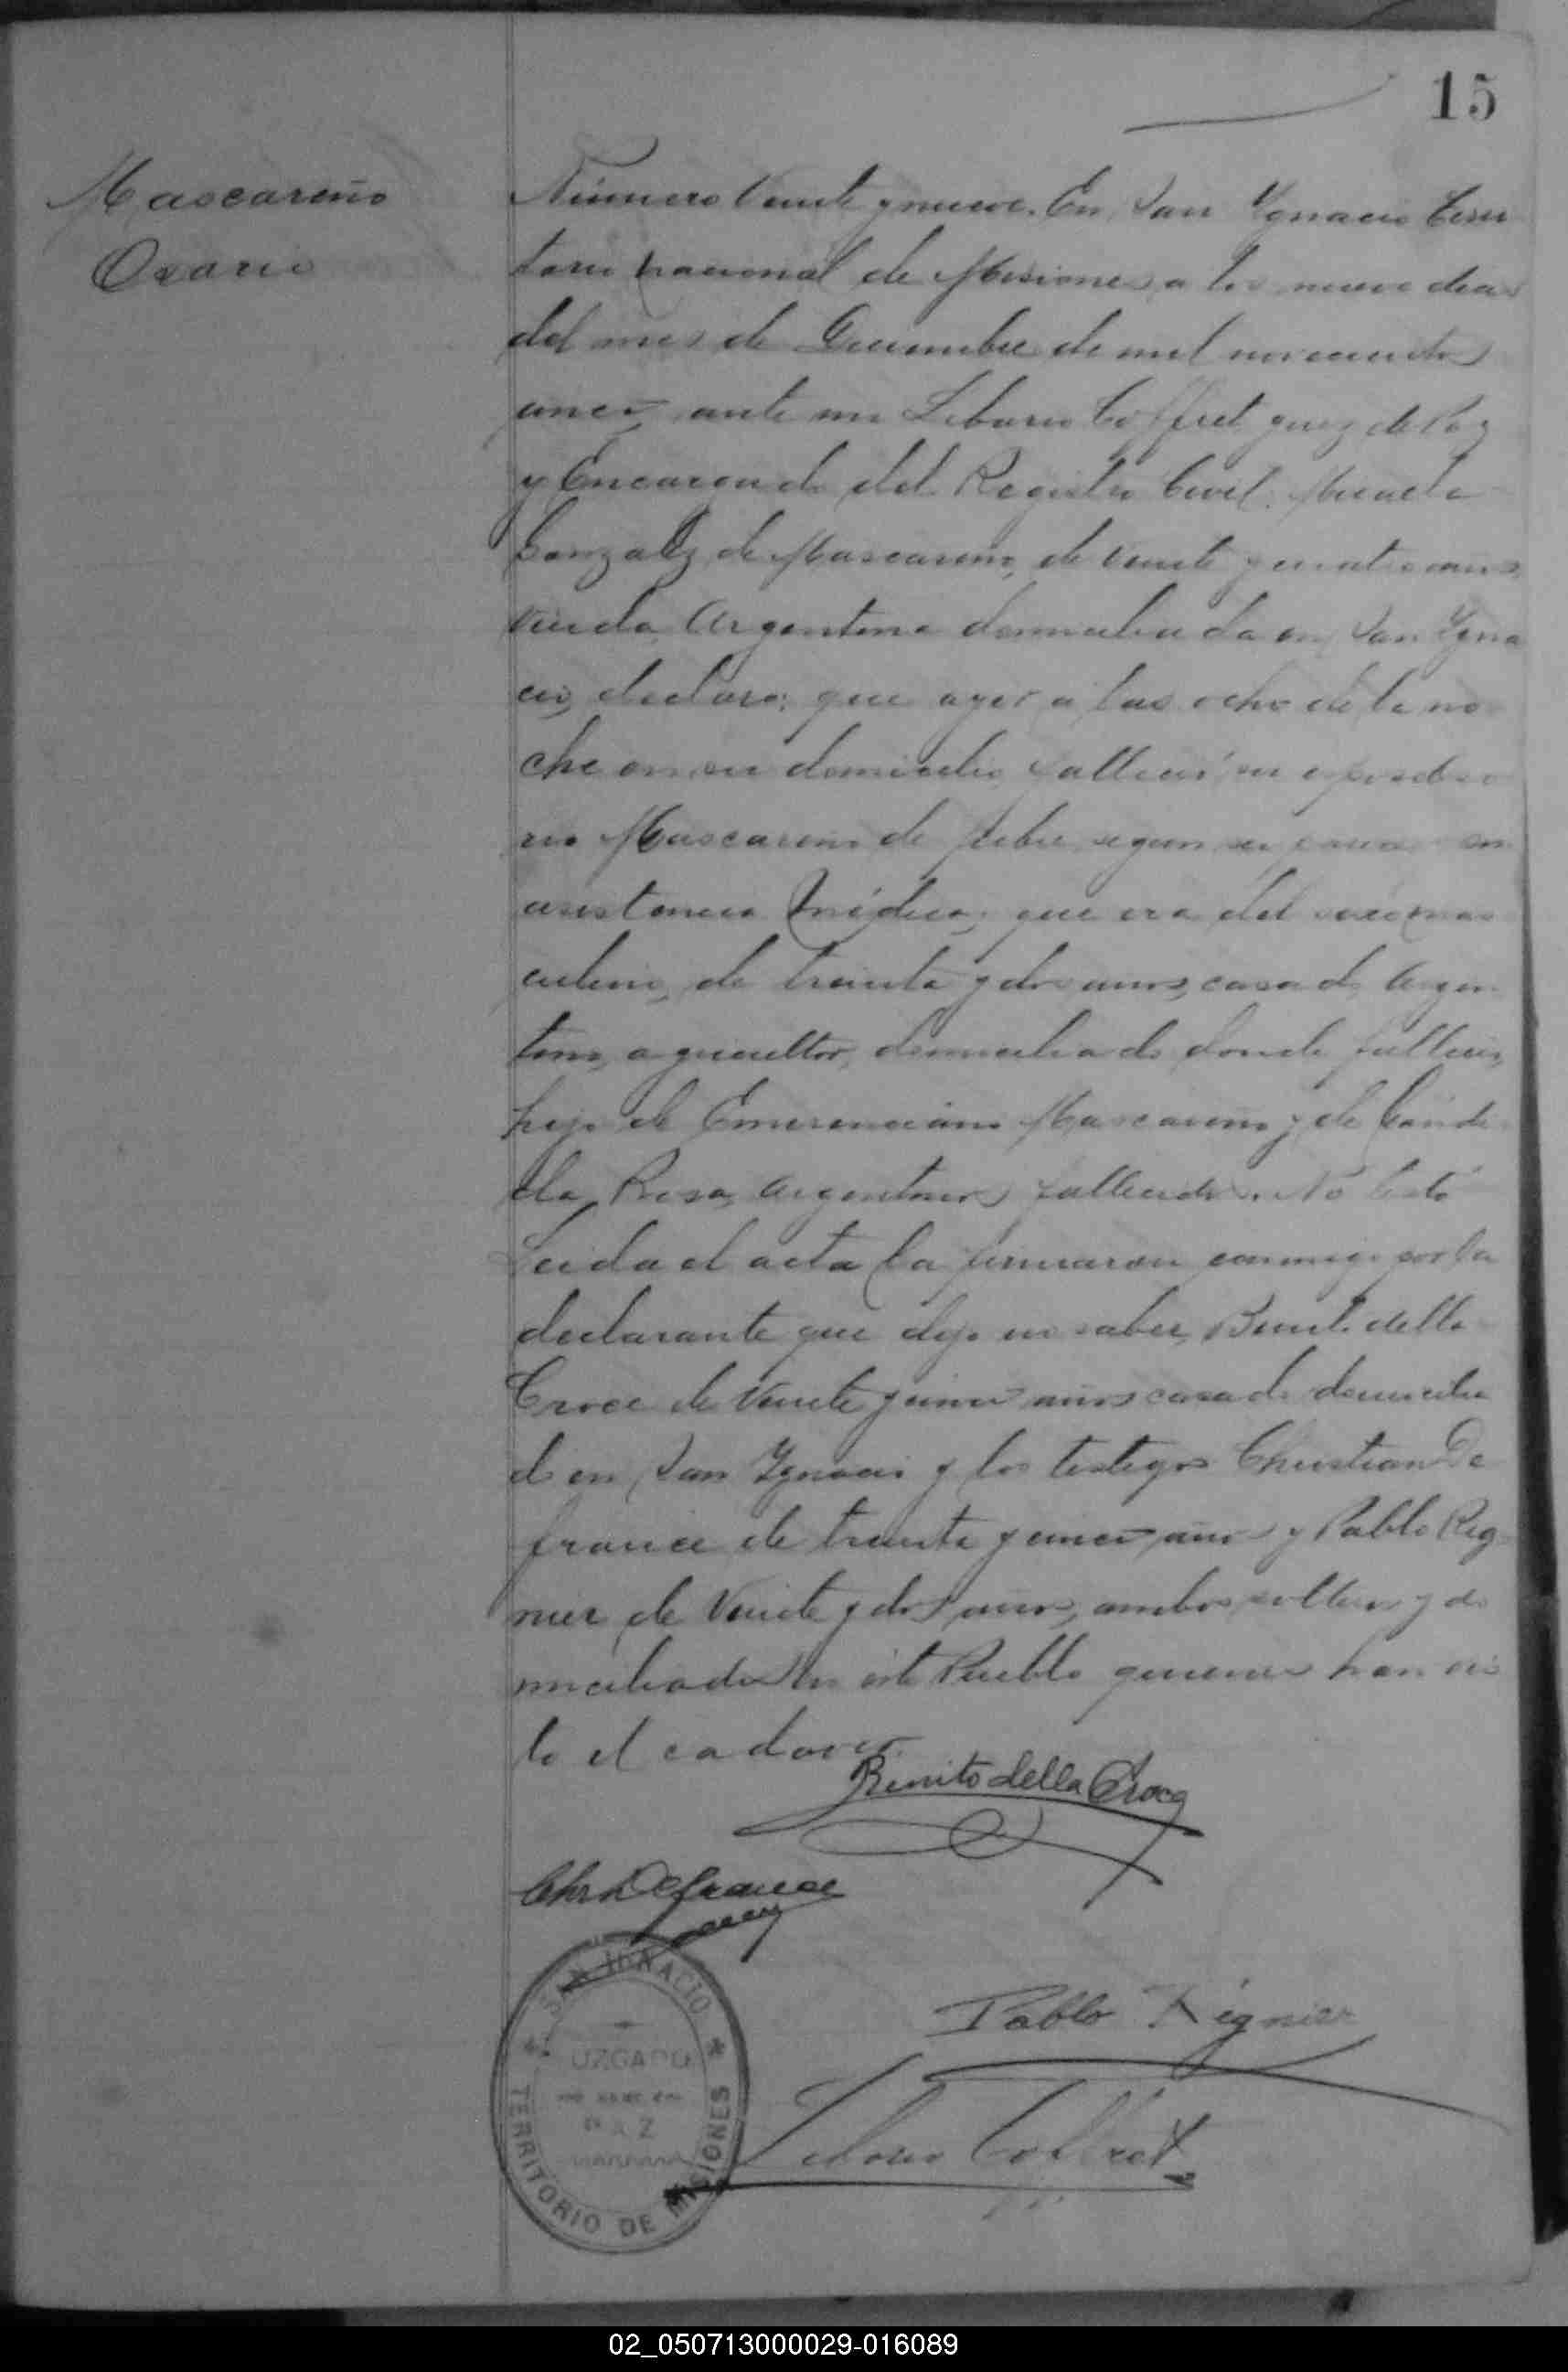 15
Mascareño
Osario
Número Veinte y nueve. En San Ygnacio Terri
torio nacional de Misiones, a los nueve dias
del mes de Diciembre de mil novecientos
cinco, ante mi Liborio Coffret Juez de Paz
y Encargado del Registro Civil.
Gonzalez de Mascareño, de veinte y cuatro años,
viuda, Argentina domiciliada en San Ygna
cio, declaro; que ayer a las ocho de la no
che en su domicilio falleció su esposo
rio Mascareño de fiebre segun se sin
asistencia médica; que era del sexo mas
culino, de treinta y dos años, casado, Argen
tino, agricultor, domiciliado donde falleció,
hijo de Emerenciano Mascareño y de Cándi
da Rosa, argentinos fallecidos. No testó
Leida el acta la firmaron conmigo por la
declarante que dijo no saber, Benito della
Croce de veinte y cinco años casado domicilia
do en San Ygnacio y los testigos Christian De
france de treinta y cinco años y Pablo Reg
nier de veinte y dos años, ambos solteros y do
miciliados en este Pueblo quienes han vis
to el cadaver.
Benito della Croce
Chr. Defrance
Pablo Régnier
Liborio Coffret
SAN IGNACIO
JUZGADO
PAZ
TERRITORIO DE MISIONES
02_050713000029-016089